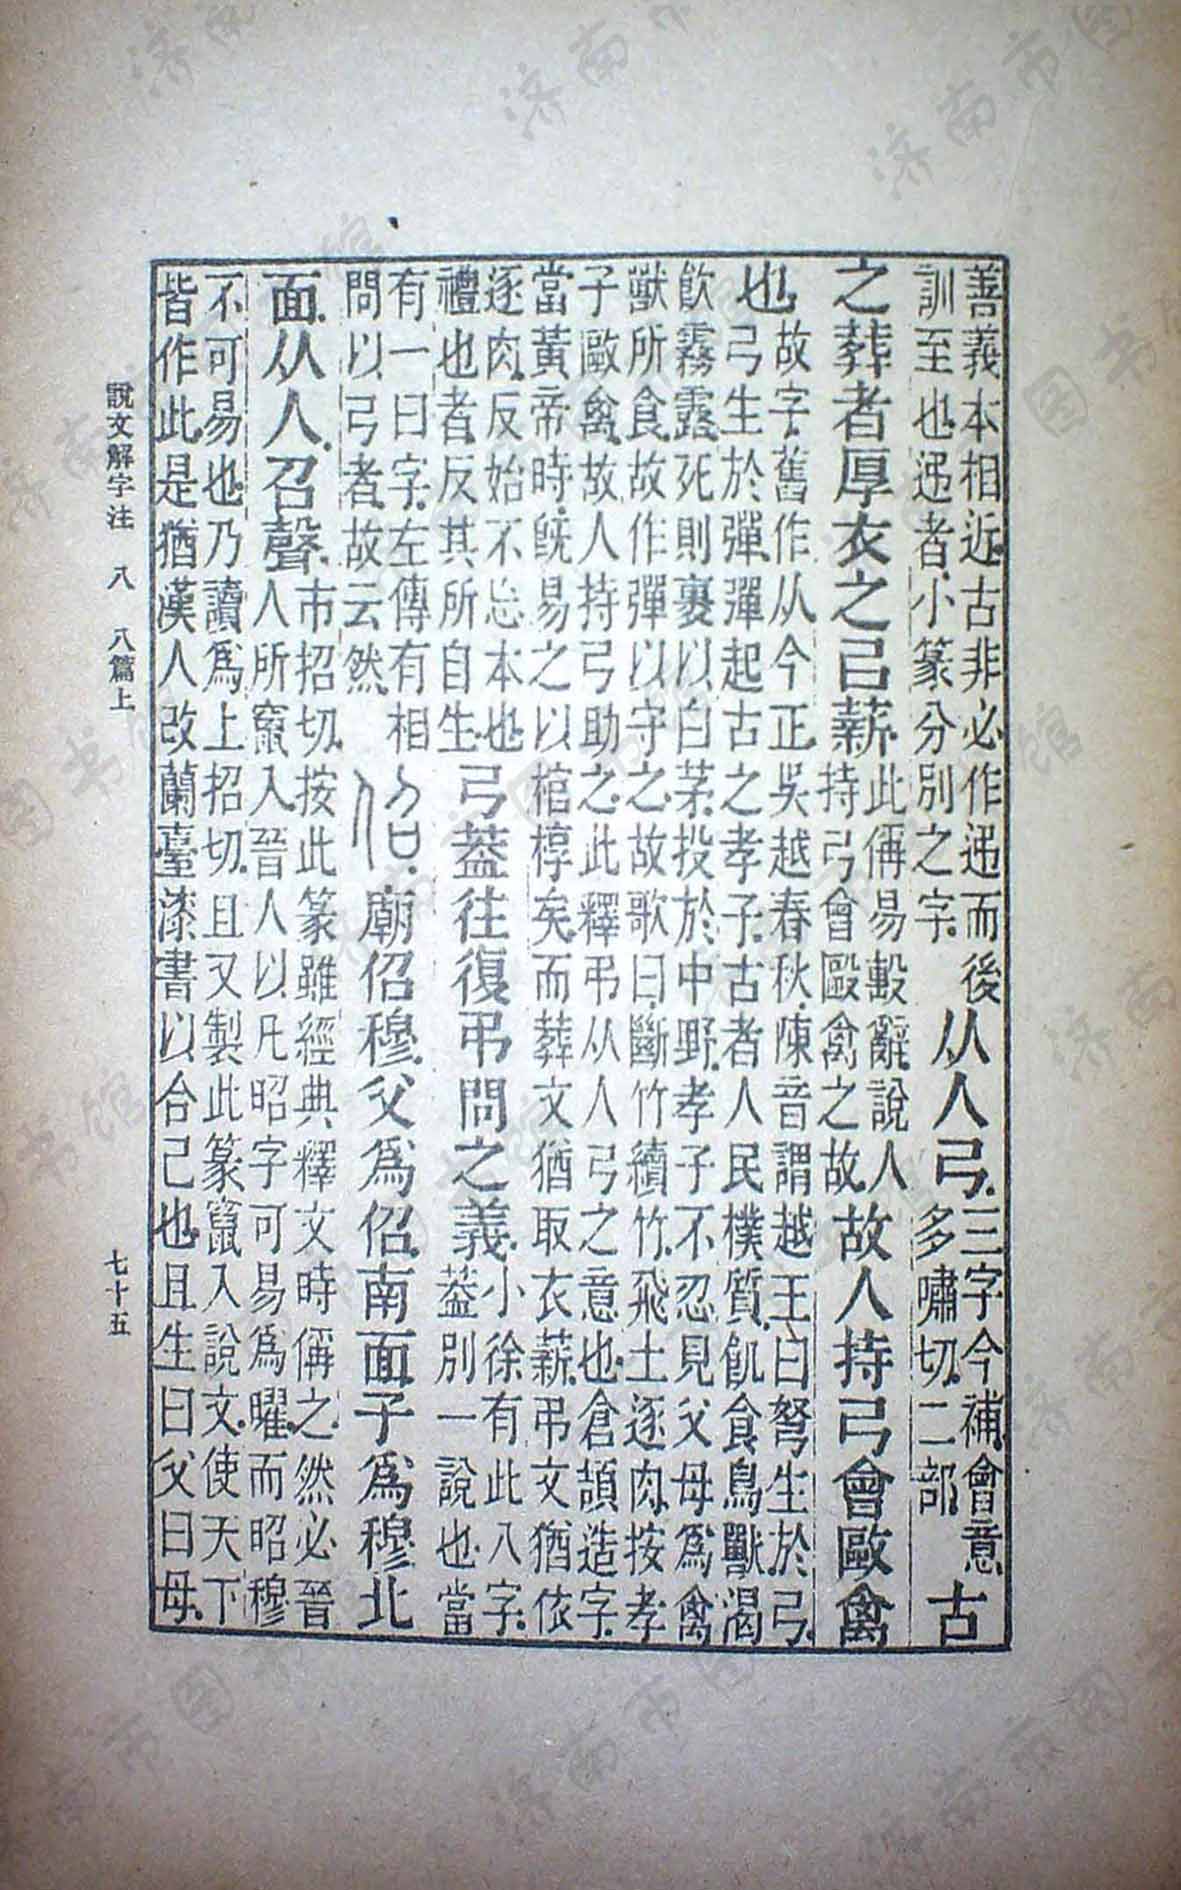 善義本相近古非必作𨑩而後
訓至也𨑩者小篆分別之字
从人弓
三字今補會意
多嘯切二部
古
之葬者厚衣之㠯薪
此偁易毄辭說人
持弓會敺禽之故
故人持弓會敺禽
也
故字舊作从今正吳越春秋陳音謂越王曰弩生於弓
弓生於彈彈起古之孝子古者人民樸質飢食鳥獸渴
飲霧露死則裹以白茅投於中野孝子不忍見父母爲禽
獸所食故作彈以守之故歌曰斷竹續竹飛土逐肉按孝
子敺禽故人持弓助之此釋弔从人弓之意也倉頡造字
當黃帝時旣易之以棺椁矣而葬文猶取衣薪弔文猶依
逐肉反始不忘本也
禮也者反其所自生
弓葢往復弔問之義
小徐有此八字
葢別一說也當
有一曰字左傳有相
問以弓者故云然
佋廟佋穆父爲佋南面子爲穆北
面从人召聲
市招切按此篆雖經典釋文時偁之然必晉
人所竄入晉人以凡昭字可易爲曜而昭穆
不可易也乃讀爲上招切且又製此篆竄入說文使天下
皆作此是猶漢人改蘭臺漆書以合己也且生曰父曰母
說文解字注 八 八篇上
七十五
济南市图书馆